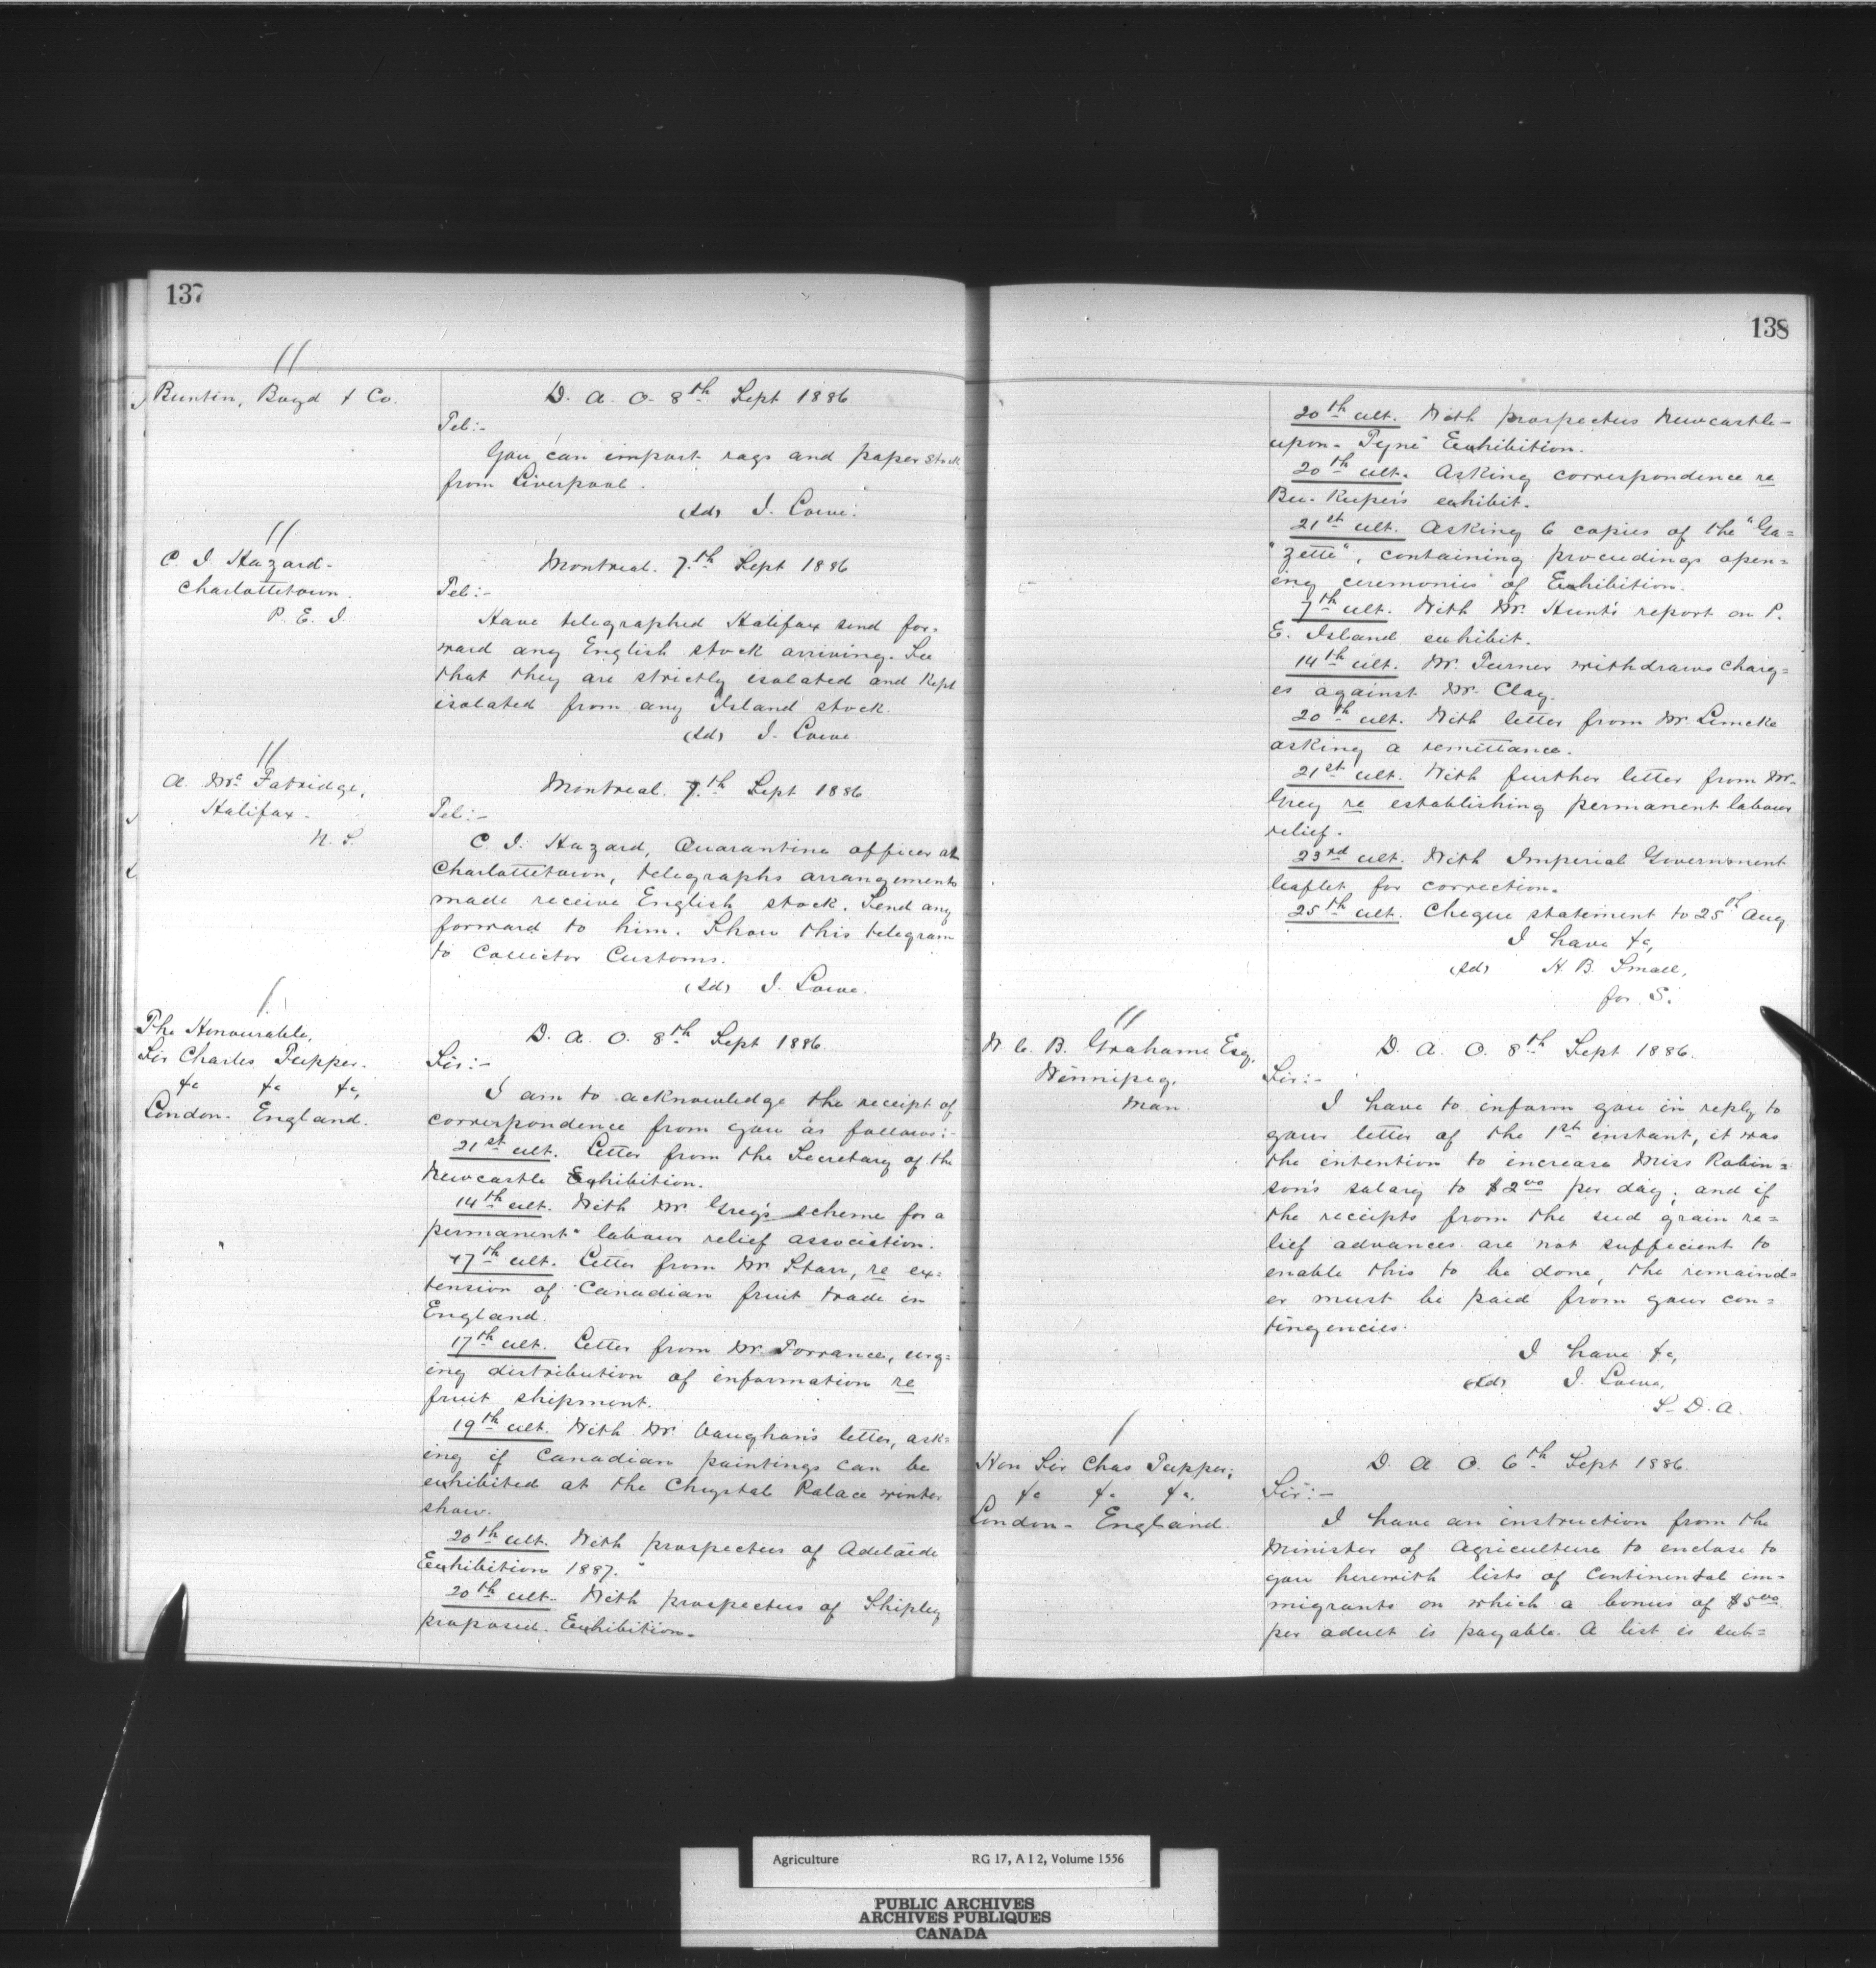 137
//
Buntin, Boyd & Co.
D. A. O. 8th Sept 1886
Tel:-
You can import rags and paper stock
from Liverpool.
(Sd) J. Lowe.
//
C. I. Hazard-
Charlottetown.
P. E. I.
Montreal. 7th Sept 1886
Tel:-
Have telegraphed Halifax send for=
ward any English stock arriving. See
that they are strictly isolated and kept
isolated from any Island stock.
(Sd) J. Lowe
//
A. Mc Fatridge,
Halifax-
N. S.
Montreal. 7th Sept 1886
Tel:-
C. I. Hazard, Quarantine officer at
Charlottetown, telegraphs arrangements
made receive English stock. Send any
forward to him. Show this telegram
to Collector Customs.
(Sd) J. Lowe.
/
The Honourable,
Sir Charles Tupper.
&c &c &c,
London- England.
D. A. O. 8th Sept 1886.
Sir:-
I am to acknowledge the receipt of
correspondence from you as follows:-
21st ult. Letter from the Secretary of the
Newcastle Exhibition.
14th ult. With Mr Greg's scheme for a
permanent labour relief association.
17th ult. Letter from Mr Starr, re ex=
tension of Canadian fruit trade in
England.
17th ult. Letter from Mr. Torrance, urg=
ing distribution of information re
fruit shipment.
19th ult. With Mr. Vaughan's letter, ask=
ing if Canadian paintings can be
exhibited at the Chrystal Palace winter
show.
20th ult. With prospectus of Adelaide
Exhibition 1887.
20th ult. With prospectus of Shipley
proposed Exhibition.
138
20th ult. With prospectus Newcastle-
upon-Tyne Exhibition.
20th ult. Asking correspondence re
Bee-Keper's exhibit.
21st ult. Asking 6 copies of the "Ga=
"zette", containing proceedings open=
ing ceremonies of Exhibition.
7th ult. With Mr. Hunt's report on P.
E. Island exhibit.
14th ult. Mr. Turner withdraws charg=
es against Mr. Clay.
20th ult. With letter from Mr. Limcke
asking a remittance.
21st ult. With further letter from Mr-
Grey re establishing permanent labour
relief.
23rd ult. With Imperial Government
leaflet for correction.
25th ult. Cheque statement to 25th Aug
I have &c,
(Sd) H. B. Small,
for S.
//
W. C. B. Grahame Esq.
Winnipeg.
Man.
D. A. O. 8th Sept 1886.
Sir:-
I have to inform you in reply to
your letter of the 1st instant, it was
the intention to increase Miss Robin=
son's salary to $2.00 per day; and if
the receipts from the seed grain re=
lief advances are not sufficient to
enable this to be done, the remaind=
er must be paid from your con=
tingencies.
I have &c,
(Sd) J. Lowe,
S. D. A.
/
Hon Sir Chas Tupper,
&c &c &c.
London- England.
D. A. O. 6th Sept 1886.
Sir:-
I have an instruction from the
Minister of Agriculture to enclose to
you herewith lists of Continental im=
migrants on which a bonus of $5.00
per adult is payable. A list is sub=
Agriculture RG 17, A I 2, Volume 1556
PUBLIC ARCHIVES
ARCHIVES PUBLIQUES
CANADA